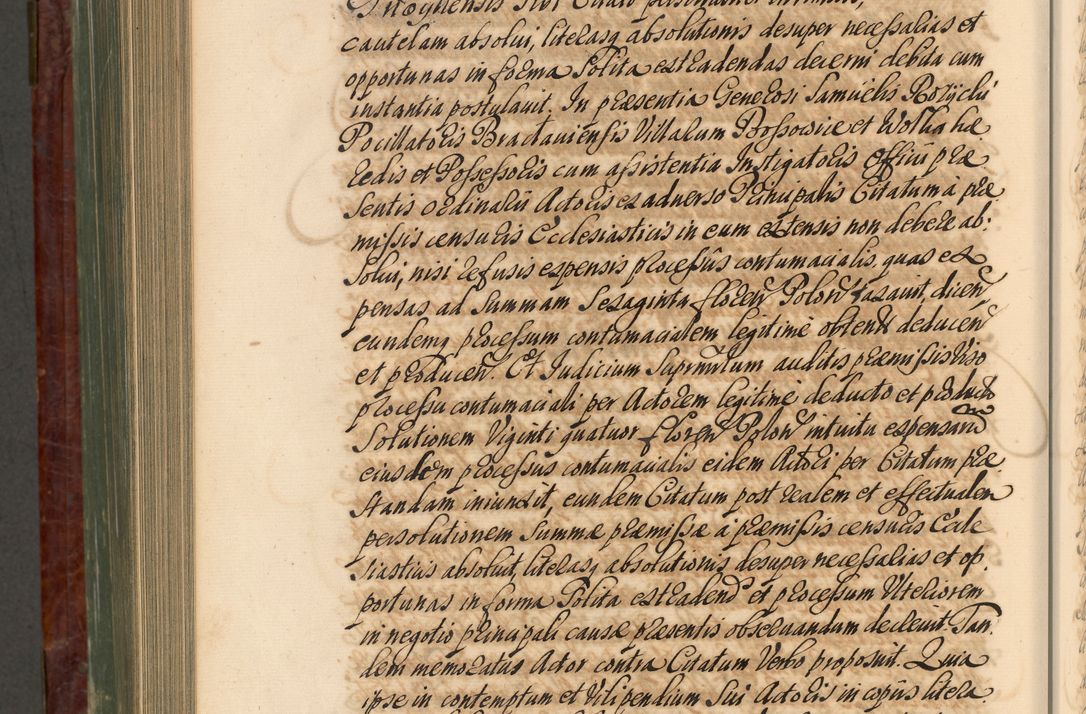 cautelam absolui, literasq absolutionis desuper necessarias et
opportunas in forma solita extradendas decerni debita cum
instantia postulauit. In praesentia Generosi Samuelis Rozycki
Pocillatoris Braclauiensis Villarum Bossowice et Wolka hæ
redis et Possessoris cum assistentia Instigatoris Officii præ
sentis ordinarii Actoris ex aduerso Principalis Citatum à præ
missis censuris Ecclesiasticis in eum extensis non debere ab:
solui, nisi refusis expensis processus contumacialis, quas ex
pensas ad summam sexaginta floren Polon taxauit, dicen
eundemq processum contumacialem legitimè obtent deducen
et producen. Et Iudicium Suprmtum auditis præmissis viso
processu contumaciali per Actorem legitimè deducto et producto
Solutionem Viginti quatuor floren Polon intuitu expensarum
eiusdem processus contumacialis eidem Actori per Citatum præ
standam iniunxit, eundem Citatum post realem et effectualem
persolutionem summæ præmissæ à præmissis censuris Eccle
siasticis absoluit, literasq absolutionis desuper necessarias et op.
portunas in forma solita extradend et processum Uteriorem
in negotio principali causæ præsentis obseruandum decreuit. Tan
dem memoratus Actor contra Citatum Verbo proposuit. Quia
ipse in contemptum et Vilipendium sui Actoris in copiis litera